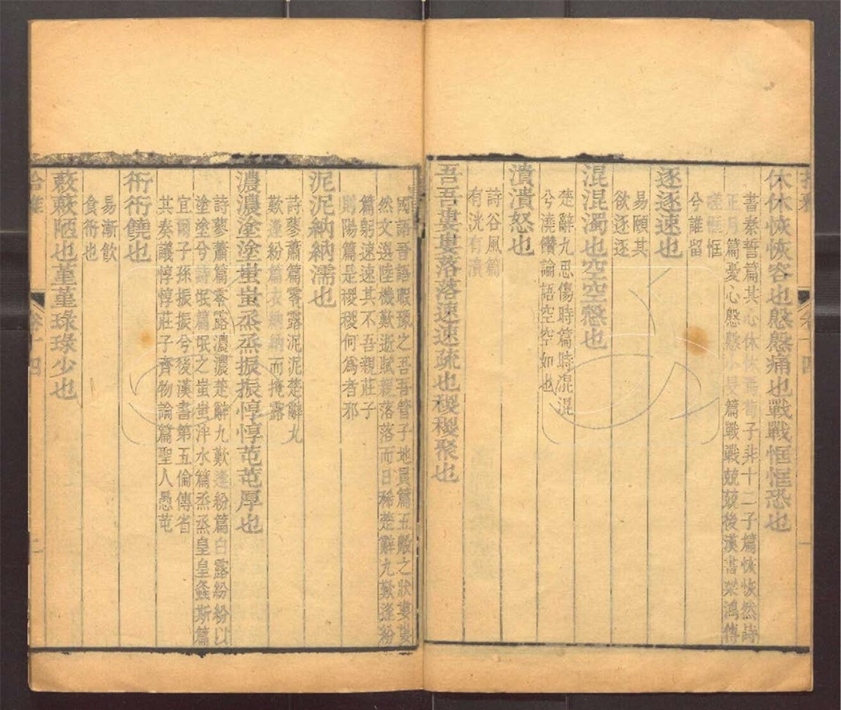 休休恢恢容也慇慇痛也戰戰恇恇恐也
書秦誓篇其心休休焉荀子非十二子篇恢恢然詩
正月篇憂心慇慇小旻篇戰戰兢兢後漢書梁鴻傳
嗟恇恇
兮誰留
逐逐速也
易頤其
欲逐逐
混混濁也空空慤也
楚辭九思傷時篇時混混
兮澆饡論語空空如也
潰潰怒也
詩谷風篇
有洸有潰
吾吾婁婁落落速速疏也稷稷聚也
國語晉語暇豫之吾吾管子地員篇五殽之狀婁婁
然文選陸機歎逝賦親落落而日稀楚辭九歎逢紛
篇躬速速其不吾親莊子
則陽篇是稷稷何爲者邪
泥泥納納濡也
詩蓼蕭篇零露泥泥楚辭九
歎逢紛篇衣納納而掩露
濃濃塗塗蚩蚩烝烝振振惇惇芚芚厚也
詩蓼蕭篇零露濃濃楚辭九歎逢紛篇白露紛紛以
塗塗兮詩氓篇氓之蚩蚩泮水篇烝烝皇皇螽斯篇
宜爾子孫振振兮後漢書第五倫傳省
其奏議惇惇莊子齊物論篇聖人愚芚
衎衎饒也
易漸飲
食衎衎也
蔌蔌陋也堇堇琭琭少也
卷十四